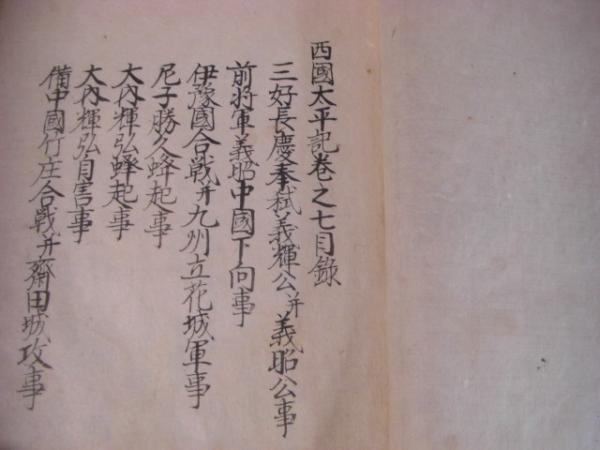 西國太平記卷之七目錄
三好長慶奉弑義輝公并義昭公事
前将軍義昭中國下向事
伊豫國合戰并九州立花城軍事
尼子勝久蜂起事
大内輝弘蜂起事
大内輝弘自害事
備中國竹庄合戰并齋田城攻事